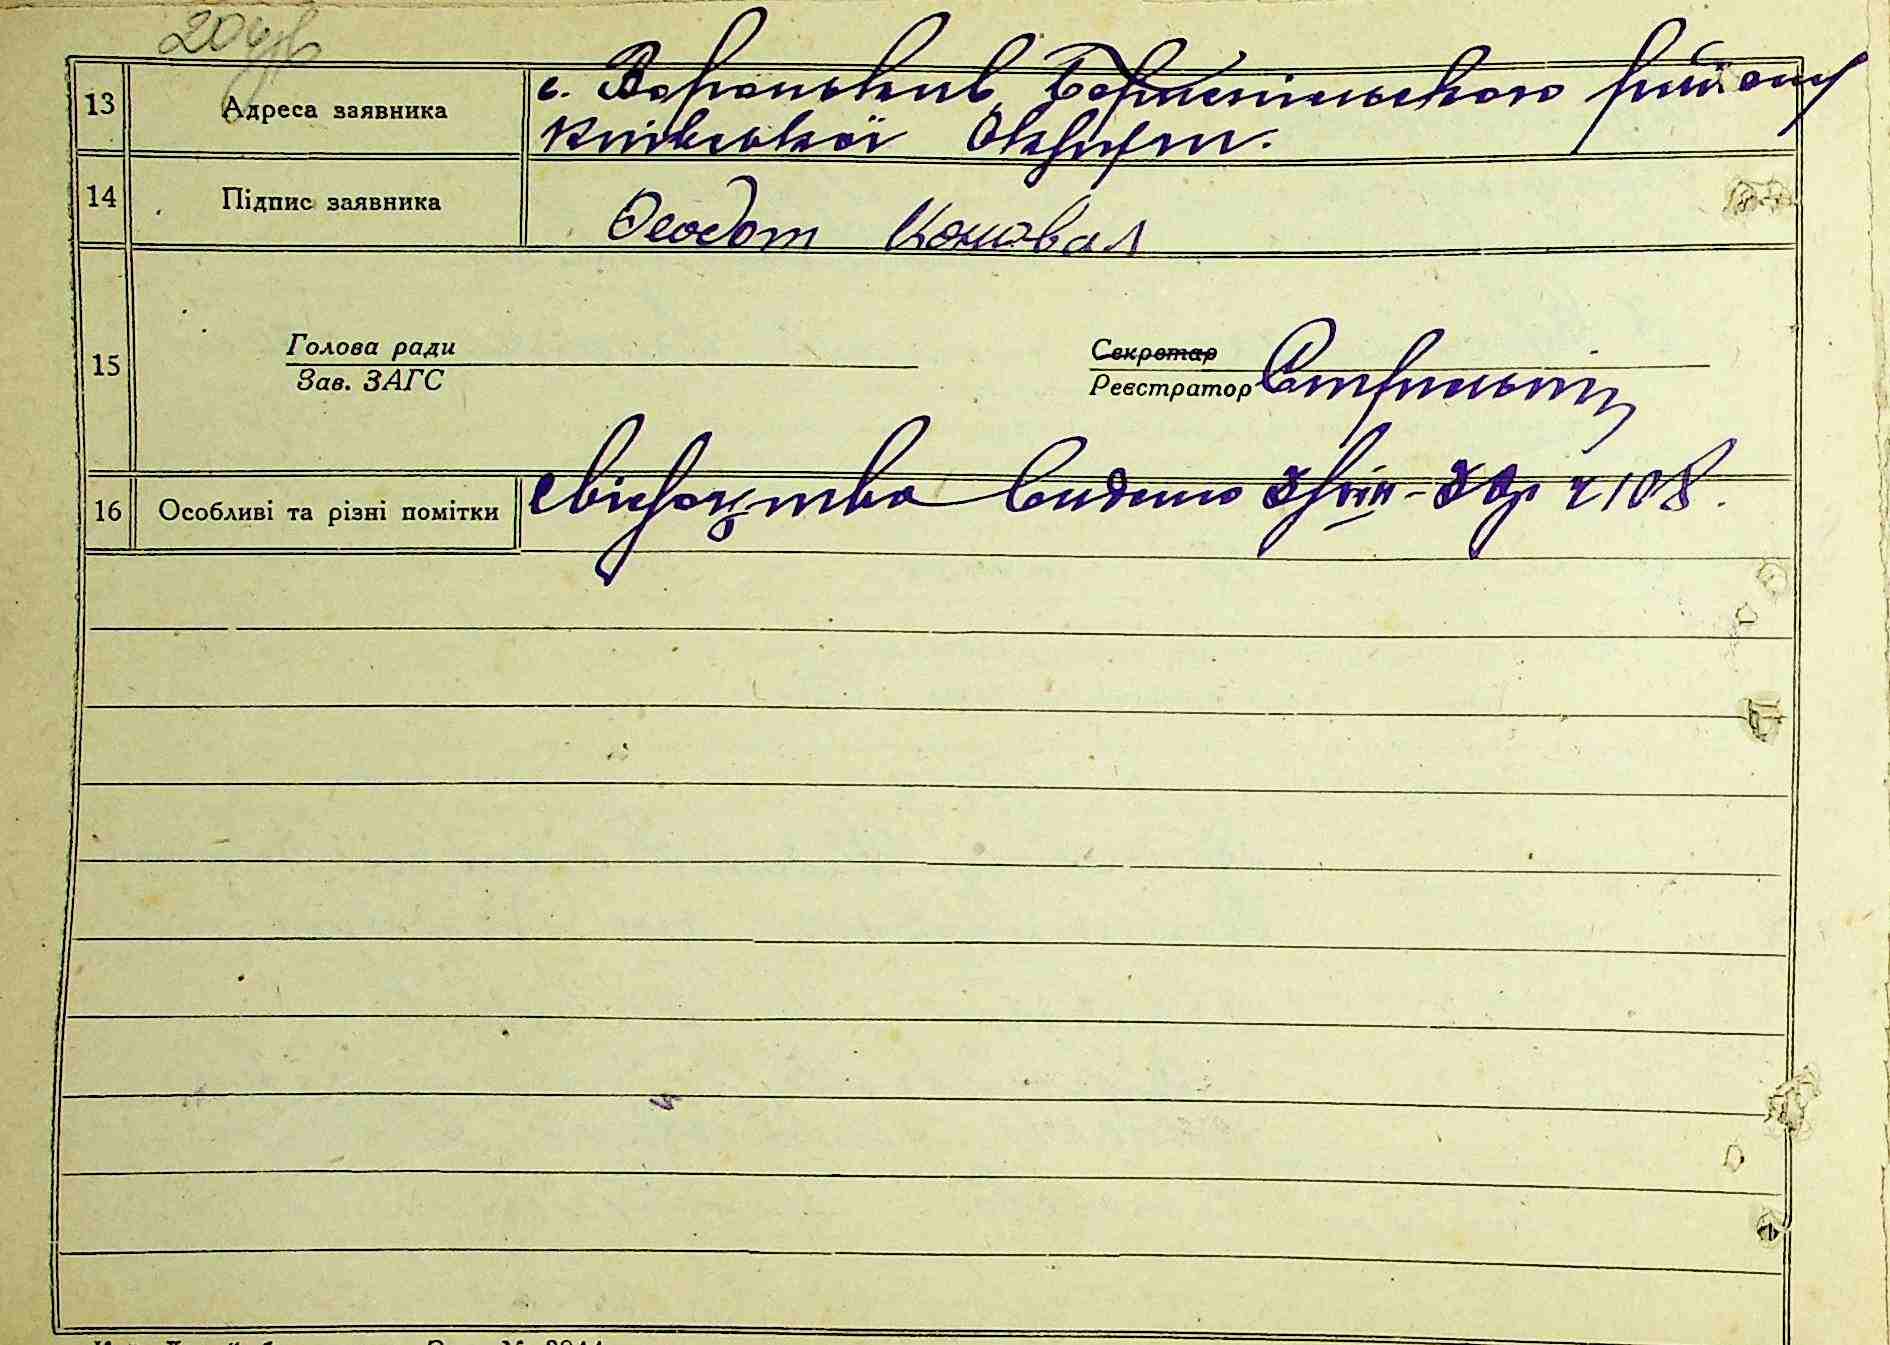 13 Адреса заявника с. Вороньків Бориспільського району
Київської Округи.
14 Підпис заявника Феодот Коновал
15 Голова ради
Зав. ЗАГС
Секретар
Реєстратор
16 Особливі та різні помітки Свідоцтво Видано ч 108.